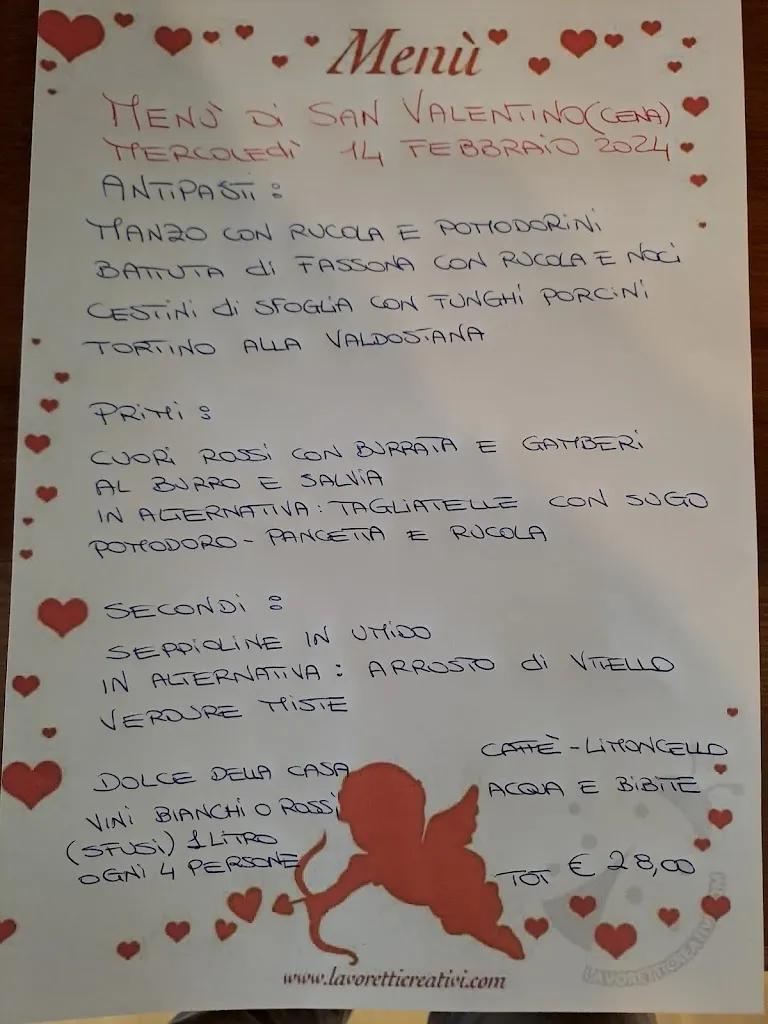 Menù
MENÙ Di SAN VALENTINO (CENA)
MERCOLEDì 14 FEBBRAIO 2024
ANTIPASTI:
MANZO CON RUCOLA E POMODORINI
BATTUTA di FASSONA CON RUCOLA E NOCI
CESTINI di SFOGLIA CON FUNGHI PORCINI
TORTINO ALLA VALDOSTANA
PRIMI:
CUORI ROSSI CON BURRATA E GAMBERI
AL BURRO E SALVIA
IN ALTERNATIVA: TAGLIATELLE CON SUGO
POMODORO - PANCETTA E RUCOLA
SECONDI:
SEPPIOLINE IN UMIDO
IN ALTERNATIVA: ARROSTO di VITELLO
VERDURE MISTE
DOLCE DELLA CASA
VINI BIANCHI O ROSSI
(SFUSI) 1 LITRO
OGNI 4 PERSONE
CAFFÈ - LIMONCELLO
ACQUA E BIBITE
TOT € 28,00
www.lavoretticreativi.com
LAVORETTICREATIVI.COM